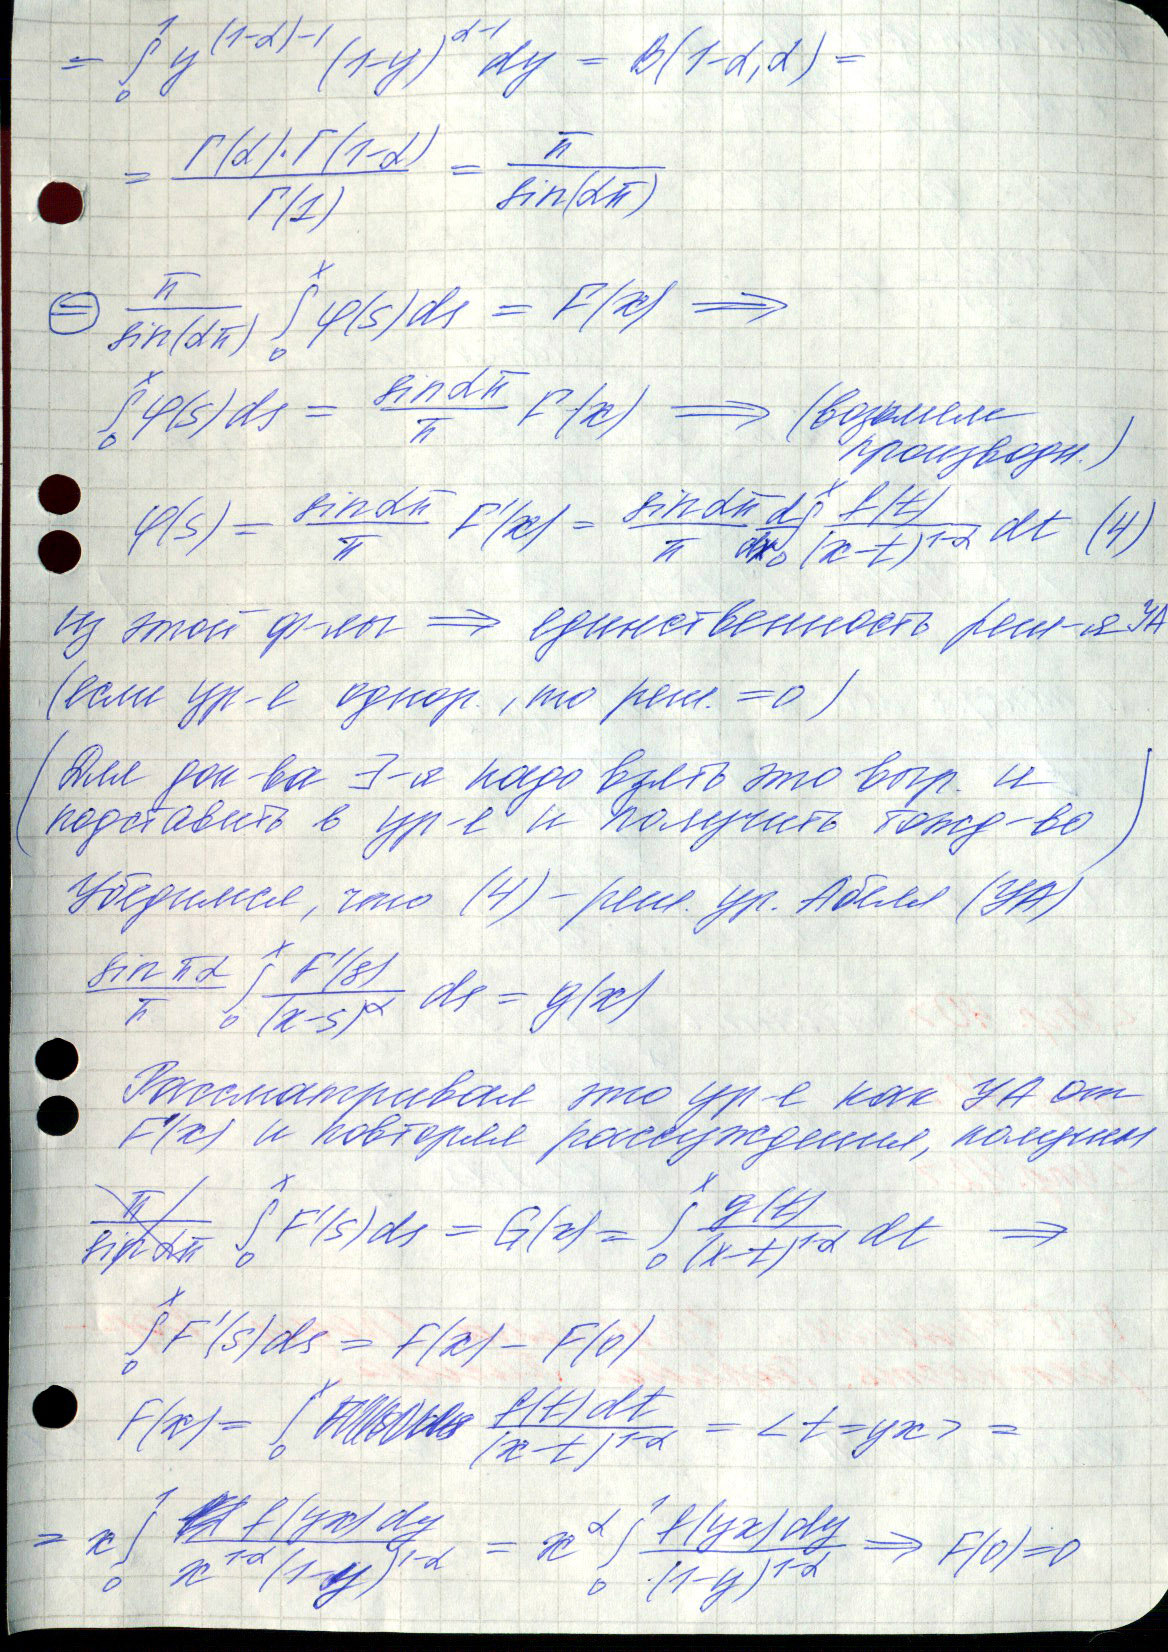 = ∫₀¹ y^{(1-α)-1} (1-y)^{α-1} dy = B(1-α, α) =
= Γ(α)·Γ(1-α) / Γ(1) = π / sin(απ)
⊜ π/sin(απ) ∫₀ˣ φ(s)ds = F(x) ⟹
∫₀ˣ φ(s)ds = sinαπ/π F(x) ⟹ (возьмем
производн.)
φ(s) = sinαπ/π F'(x) = sinαπ/π d/dx ∫₀ˣ f(t)/(x-t)^{1-α} dt (4)
Из этой ф-лы ⟹ единственность реш-я УА
(если ур-е однор., то реш. =0)
(Для док-ва ∃-я надо взять это выр. и
подставить в ур-е и получить тожд-во)
Убедимся, что (4) - реш. ур. Абеля (УА)
sinπα/π ∫₀ˣ F'(s)/(x-s)^α ds = g(x)
Рассматривая это ур-е как УА от
F'(x) и повторяя рассуждения, получим
π/sinαπ ∫₀ˣ F'(s)ds = G(x) = ∫₀ˣ g(t)/(x-t)^{1-α} dt ⟹
∫₀ˣ F'(s)ds = F(x) - F(0)
F(x) = ∫₀ˣ f(t)dt/(x-t)^{1-α} = <t=yx> =
= x ∫₀¹ f(yx)dy / x^{1-α}(1-y)^{1-α} = x^α ∫₀¹ f(yx)dy/(1-y)^{1-α} ⟹ F(0)=0